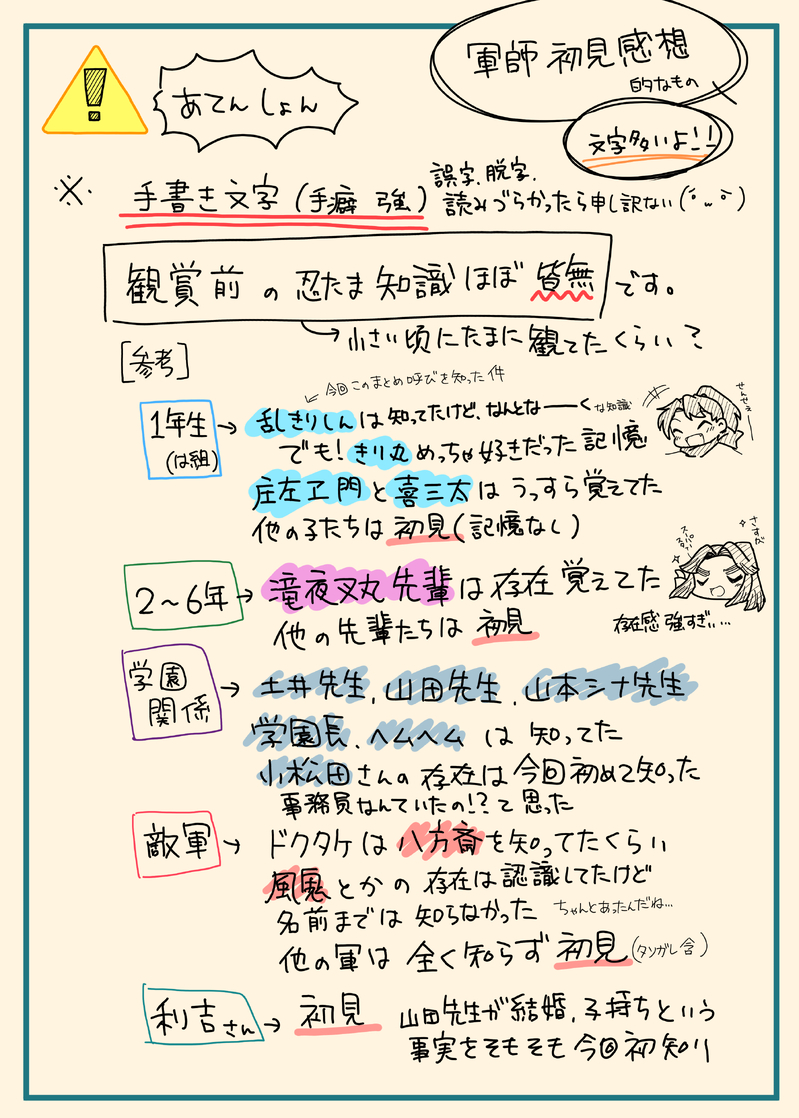 軍師 初見感想
的なもの
文字多いよ!!
あてんしょん
※ 手書き文字(手癖 強) 誤字、脱字、
読みづらかったら申し訳ない
観賞前の忍たま知識ほぼ皆無です。
→小さい頃にたまに観てたくらい?
[参考]
今回このまとめ呼びを知った件
1年生
(は組)
→ 乱きりしんは知ってたけど、なんとな――くな知識
でも!きり丸めっちゃ好きだった記憶
庄左ヱ門と喜三太はうっすら覚えてた
他の子たちは初見(記憶なし)
せんせぇー
2~6年→ 滝夜叉丸先輩は存在覚えてた
他の先輩たちは初見
さすが
スーパー
存在感強すぎぃ…
学園
関係
→ 土井先生、山田先生、山本シナ先生
学園長、ヘムヘムは知ってた
小松田さんの存在は今回初めて知った
事務員なんていたの!?て思った
敵軍→ ドクタケは八方斎を知ってたくらい
風鬼とかの存在は認識してたけど
名前までは知らなかった ちゃんとあったんだね…
他の軍は全く知らず初見(タソガレ含)
利吉さん→ 初見 山田先生が結婚、子持ちという
事実をそもそも今回初知り